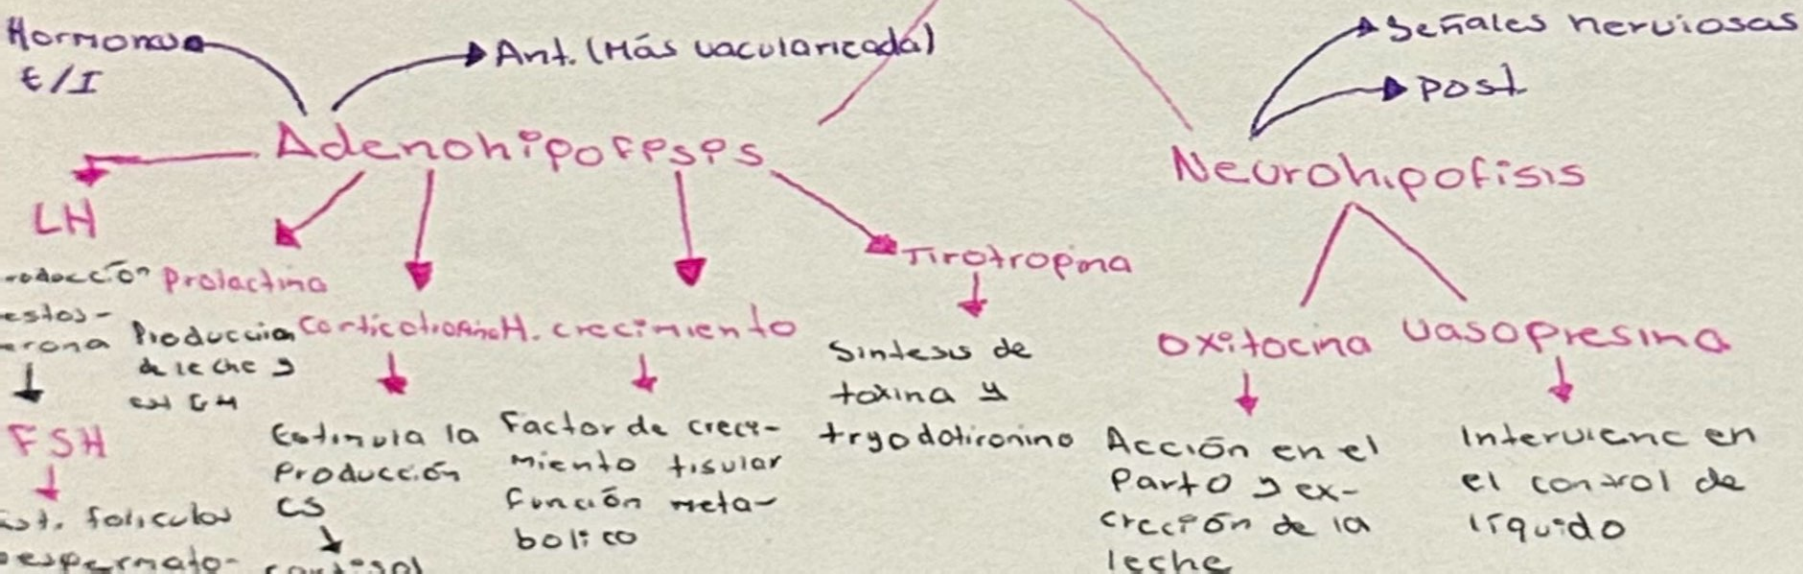 Hormonas
E/I
Ant. (Más vacularizada)
Señales nerviosas
Post
Adenohipofisis
Neurohipofisis
LH
roducción
estos-
erona
FSH
Est. foliculos
espermato-
Prolactina
Producción
de leche y
Corticotropina
Estimula la
Producción
CS
cortisol
H. crecimiento
Factor de creci-
miento tisular
Función meta-
bolico
Tirotropina
Sintesis de
toxina y
tryodotironino
Oxitocina
Acción en el
Parto y ex-
creción de la
leche
Vasopresina
Interviene en
el control de
líquido